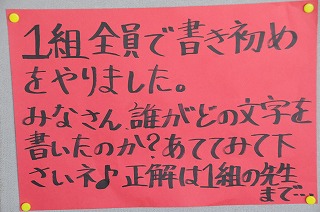 1組全員で書き初め
をやりました。
みなさん、誰がどの文字を
書いたのか?あててみて下
さいネ♪正解は1組の先生
まで…